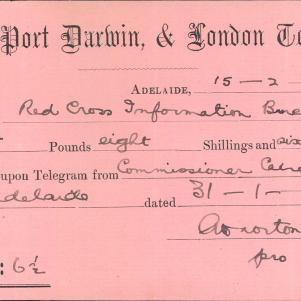 Port Darwin, & London Te
ADELAIDE, 15-2
Red Cross Information Bure
Pounds eight Shillings and six
upon Telegram from Commissioner Cairo
delaide dated 31-1-
pro
: 6½